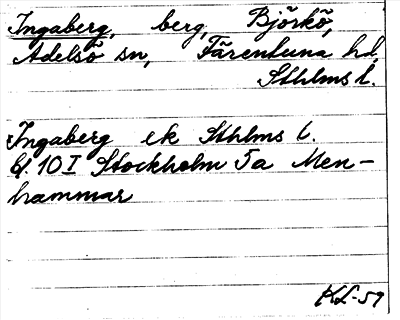 Ingaberg, berg, Björkö,
Adelsö sn, Färentuna hd,
Sthlms l.
Ingaberg ek Sthlms l.
bl. 10 I Stockholm 5a Men-
hammar
KL-59